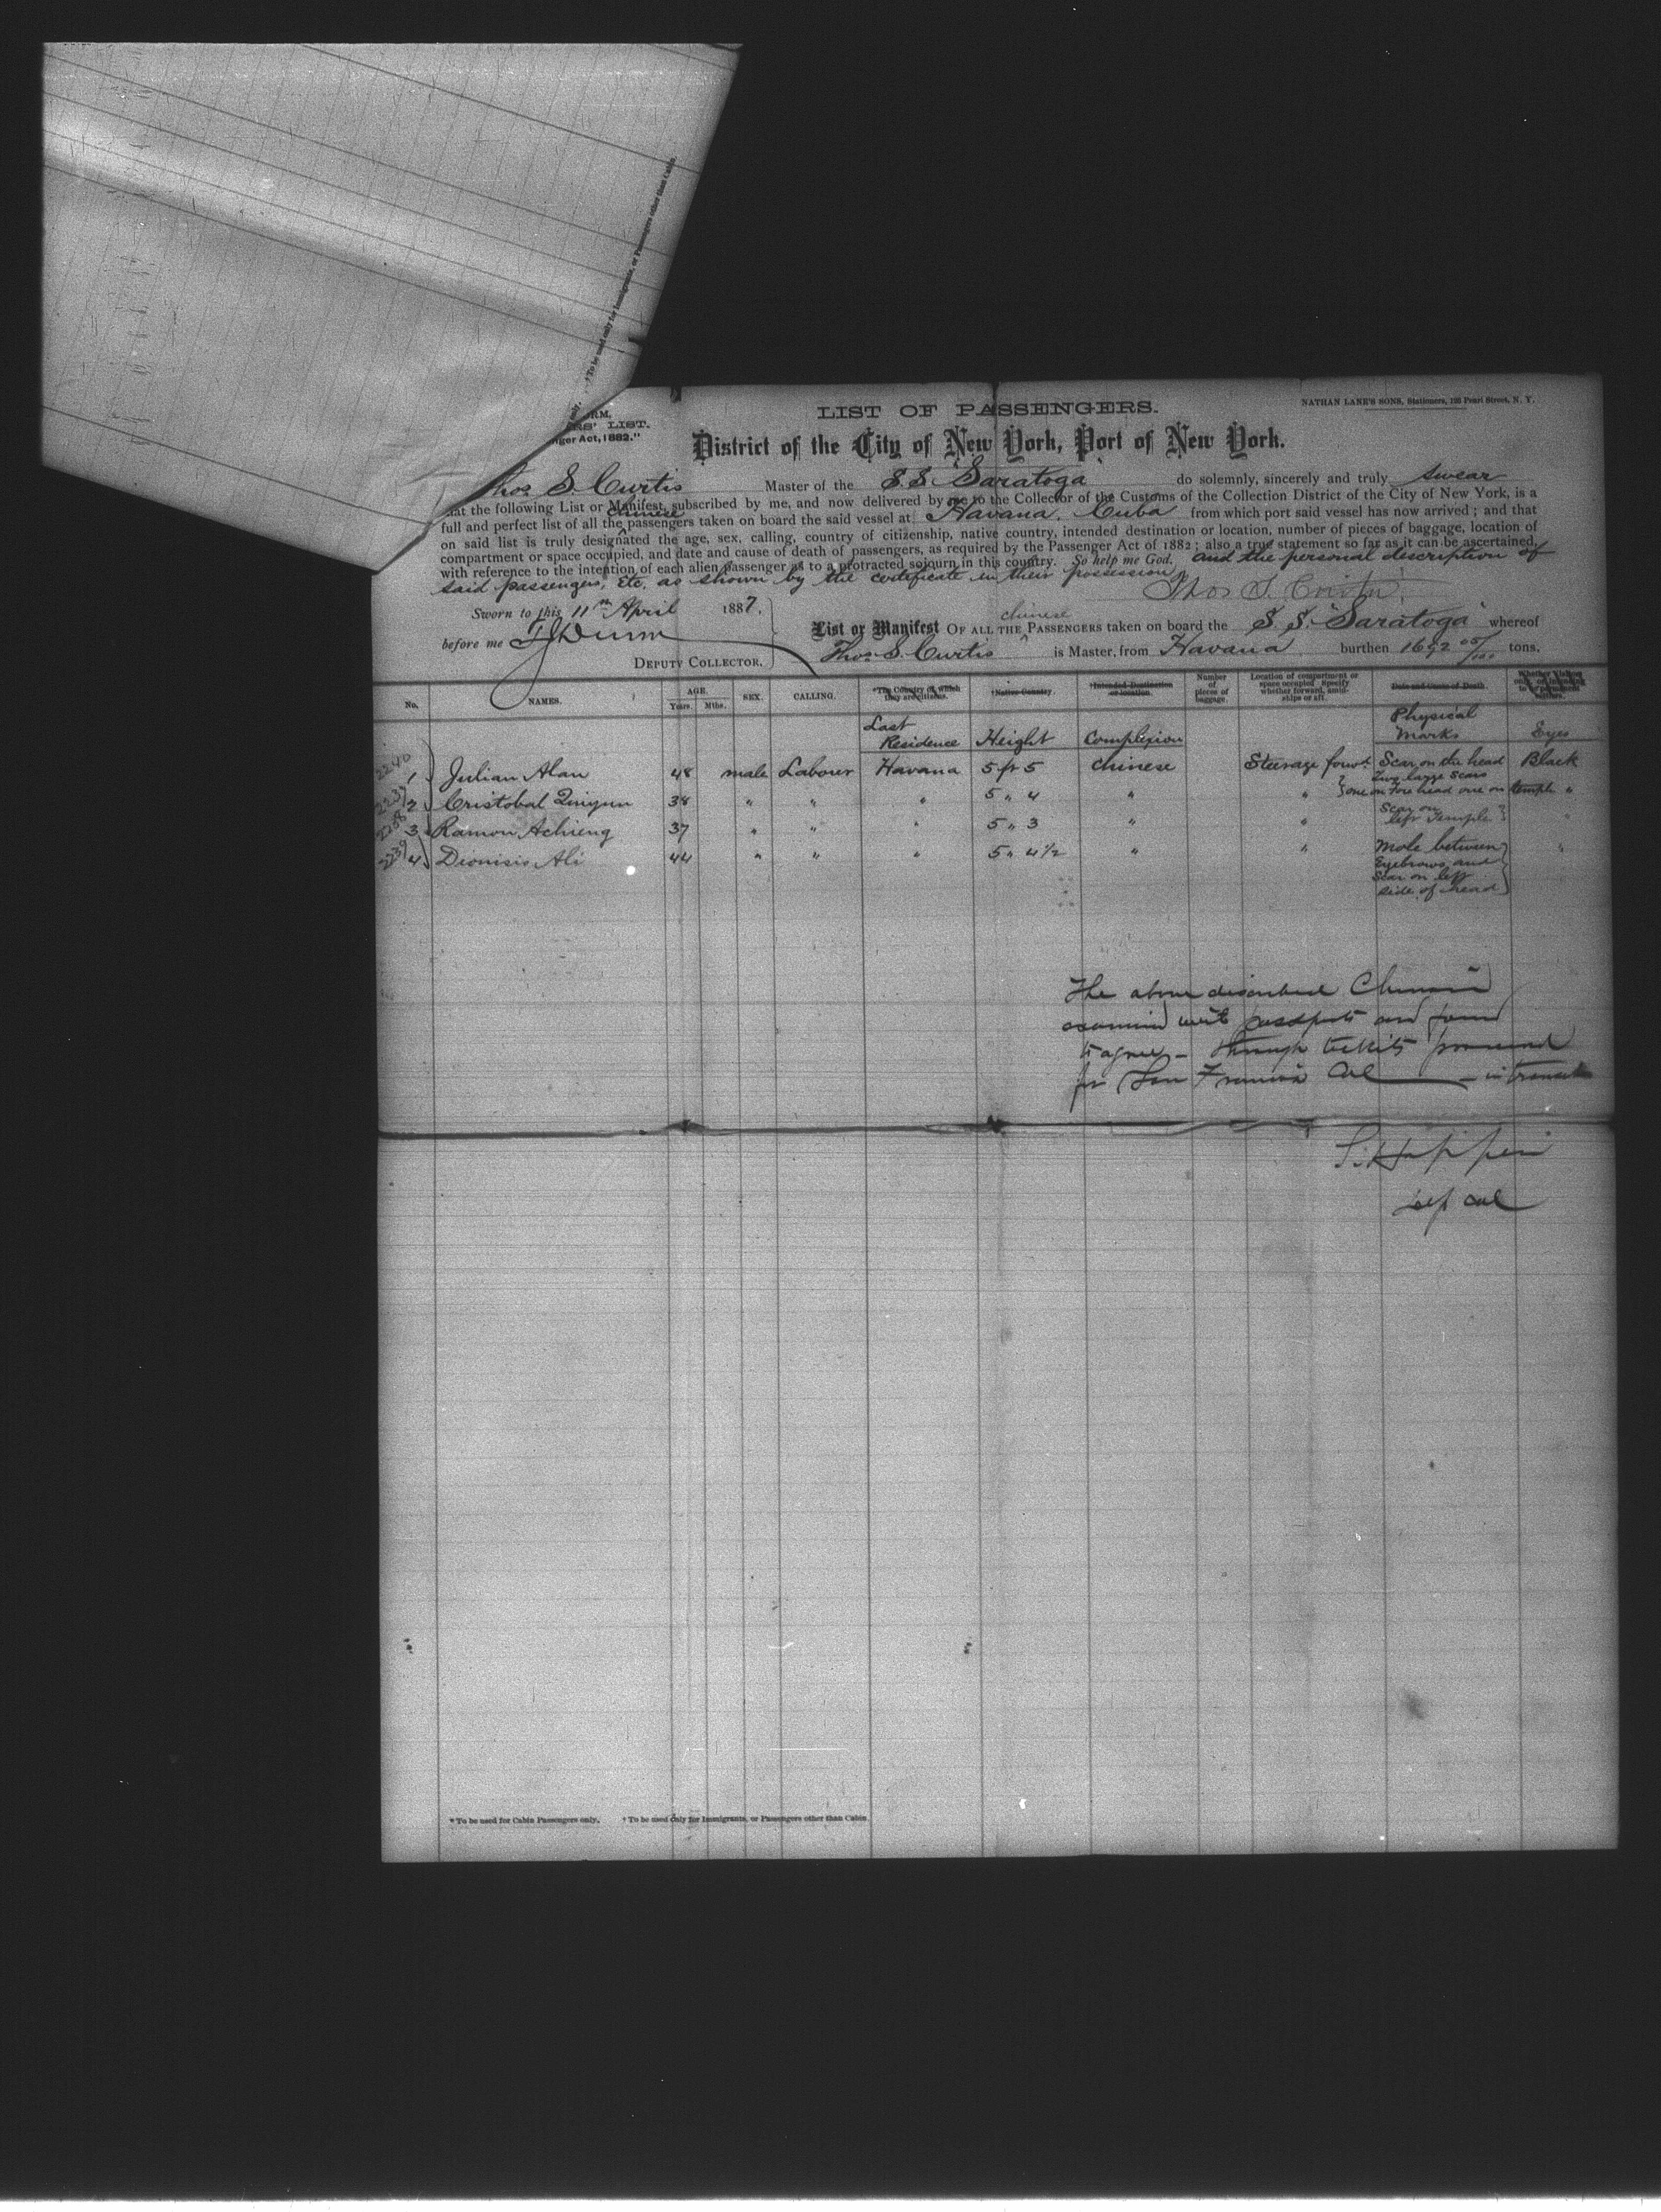 † To be used only for Immigrants, or Passengers other than Cabin.
only,
ORM,
ERS' LIST.
nger Act, 1882."
LIST OF PASSENGERS.
NATHAN LANE'S SONS, Stationers, 125 Pearl Street, N. Y.
District of the City of New York, Port of New York.
Thos. S. Curtis Master of the S.S. "Saratoga" do solemnly, sincerely and truly swear
that the following List or Manifest, subscribed by me, and now delivered by me to the Collector of the Customs of the Collection District of the City of New York, is a
full and perfect list of all the chinese passengers taken on board the said vessel at Havana, Cuba from which port said vessel has now arrived; and that
on said list is truly designated the age, sex, calling, country of citizenship, native country, intended destination or location, number of pieces of baggage, location of
compartment or space occupied, and date and cause of death of passengers, as required by the Passenger Act of 1882; also a true statement so far as it can be ascertained,
with reference to the intention of each alien passenger as to a protracted sojourn in this country. So help me God. and the personal description of
said passengers, Etc. as shown by the certificate in their possession
Thos S. Curtis
Sworn to this 11th April 1887.
before me
DEPUTY COLLECTOR.
List or Manifest OF ALL THE chinese PASSENGERS taken on board the S. S. "Saratoga" whereof
Thos. S. Curtis is Master, from Havana burthen 1692 05/100 tons.
No. NAMES. AGE. Years. Mths. SEX. CALLING. *The Country of which they are citizens. †Native Country. †Intended Destination or location. Number of pieces of baggage. Location of compartment or space occupied Specify whether forward, amidships or aft. Date and Cause of Death.
Last Residence Height Complexion Physical Marks Eyes
2240 1 Julian Alan 48 male Labourer Havana 5 ft 5 chinese Steerage forwd. Scar on the head Black
2 Cristobal Quiyun 38 " " " 5 " 4 " " Two large scars one on Forehead one on temple "
3 Ramon Achieng 37 " " " 5 " 3 " " Scar on left Temple "
2239 4 Dionisio Ali 44 " " " 5 " 4½ " " Mole between Eyebrows and Scar on left side of head "
The above described Chinese
examined with passports and found
to agree - through tickets
for San Francisco Cal - in transit
dep col
* To be used for Cabin Passengers only. † To be used only for Immigrants, or Passengers other than Cabin